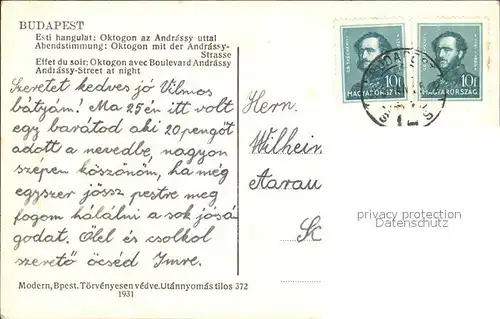 BUDAPEST
Esti hangulat: Oktogon az Andrássy uttal
Abendstimmung: Oktogon mit der Andrássy-
Strasse
Effet du soir: Oktogon avec Boulevard Andrássy
Andrássy-Street at night
Szeretet kedves jó Vilmos
bátyám! Ma 25én itt volt
egy barátod aki 20 pengőt
adott a nevedbe, nagyon
szépen köszönöm, ha még
egyszer jössz pestre meg
fogom hálálni a sok jósá
godat. Ölel és csolkol
szerető öcséd Imre.
Modern, Bpest. Törvényesen védve. Utánnyomás tilos 372
1931
10f 10f
MAGYARORSZÁG MAGYARORSZÁG
BUDAPEST
Herrn.
Wilheim
Aarau
privacy protection
VERANDI